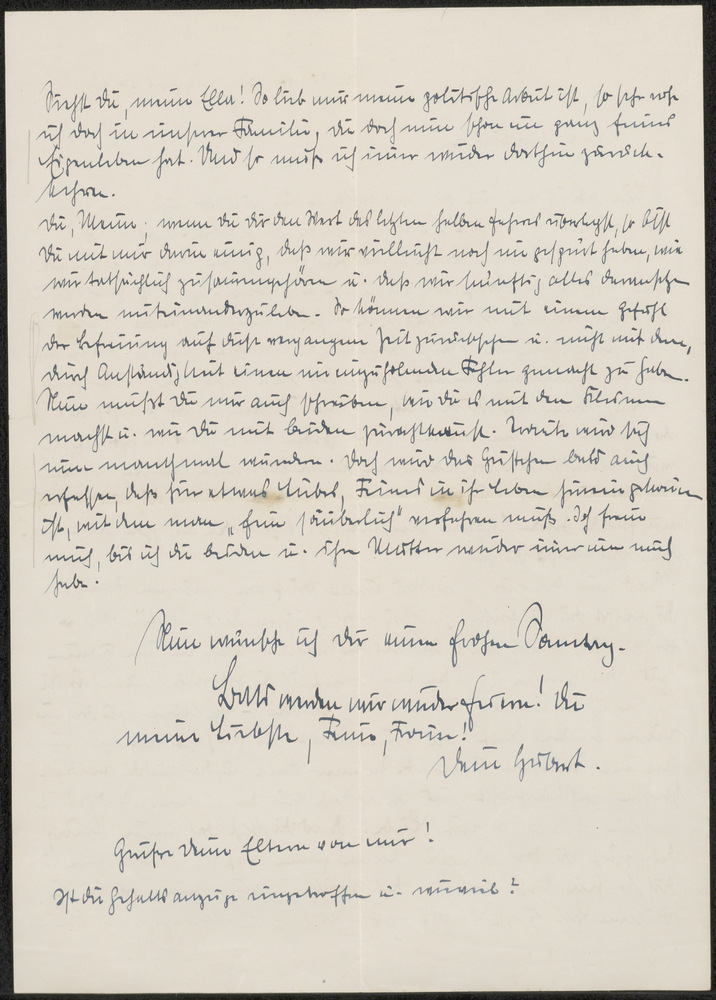 Siehst Du, meine Ella! So lieb mir meine politische Arbeit ist, so sehr
ich doch in unserer Familie, die doch nun schon ein ganz feines
Eigenleben hat. Und so muß ich immer wieder dorthin zurück-
kehren.
Du, Meine, wenn Du Dir den Wert des letzten halben Jahres überlegst, so bist
Du mit mir darin einig, daß wir vielleicht noch nie gespürt haben, wie
wir tatsächlich zusammengehören u. daß wir künftig alles daransetzen
werden miteinanderzuleben. So können wir mit einem Gefühl
der Befreiung auf diese vergangene Zeit zurücksehen u. nicht mit dem,
durch Anständigkeit einen nie einzuholenden Fehler gemacht zu haben.
Nun mußt Du mir auch schreiben, wie Du es mit den Kleinen
machst u. wie Du mit beiden zurechtkommst. wird sich
nun manchmal wundern. Doch wird das bald auch
erfassen, daß hier etwas Liebes, Feines in ihr Leben hineingekommen
ist, mit dem man „fein säuberlich" verfahren muß. Ich freue
mich, bis ich die beiden u. ihre Mutter wieder immer um mich
habe.
Nun wünsche ich Dir einen frohen Sonntag.
Bald werden wir wieder feiern! Du
meine Liebste, Feine, Frau!
Dein Hubert.
Grüße Deine Eltern von mir!
Ist die Gehaltsanzeige eingetroffen u. wieviel?